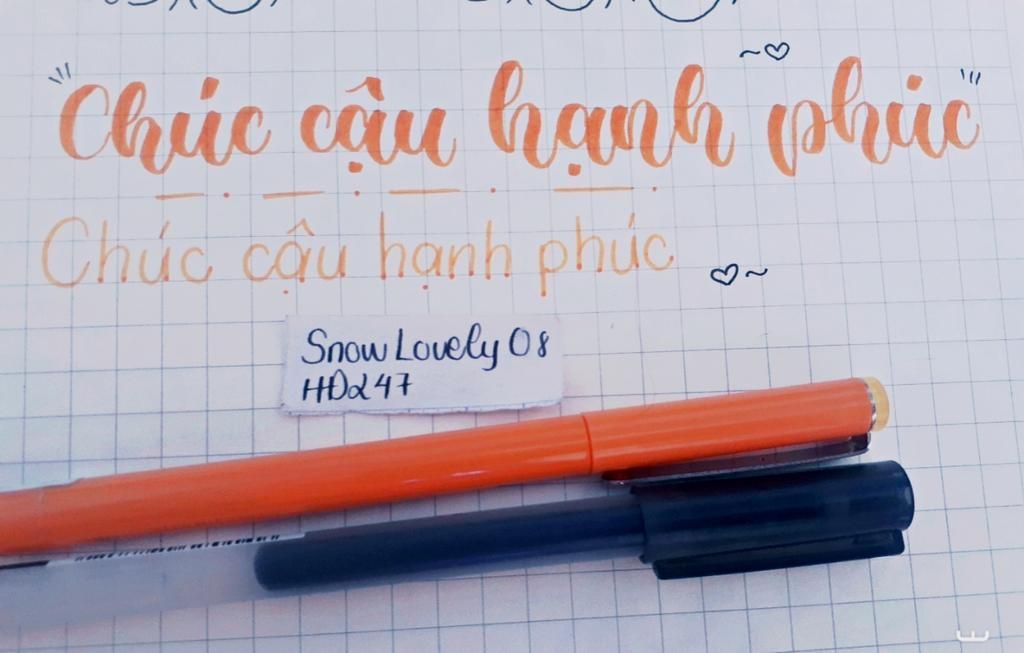 Chúc cậu hạnh phúc
Chúc cậu hạnh phúc
Snow Lovely 08
HD247